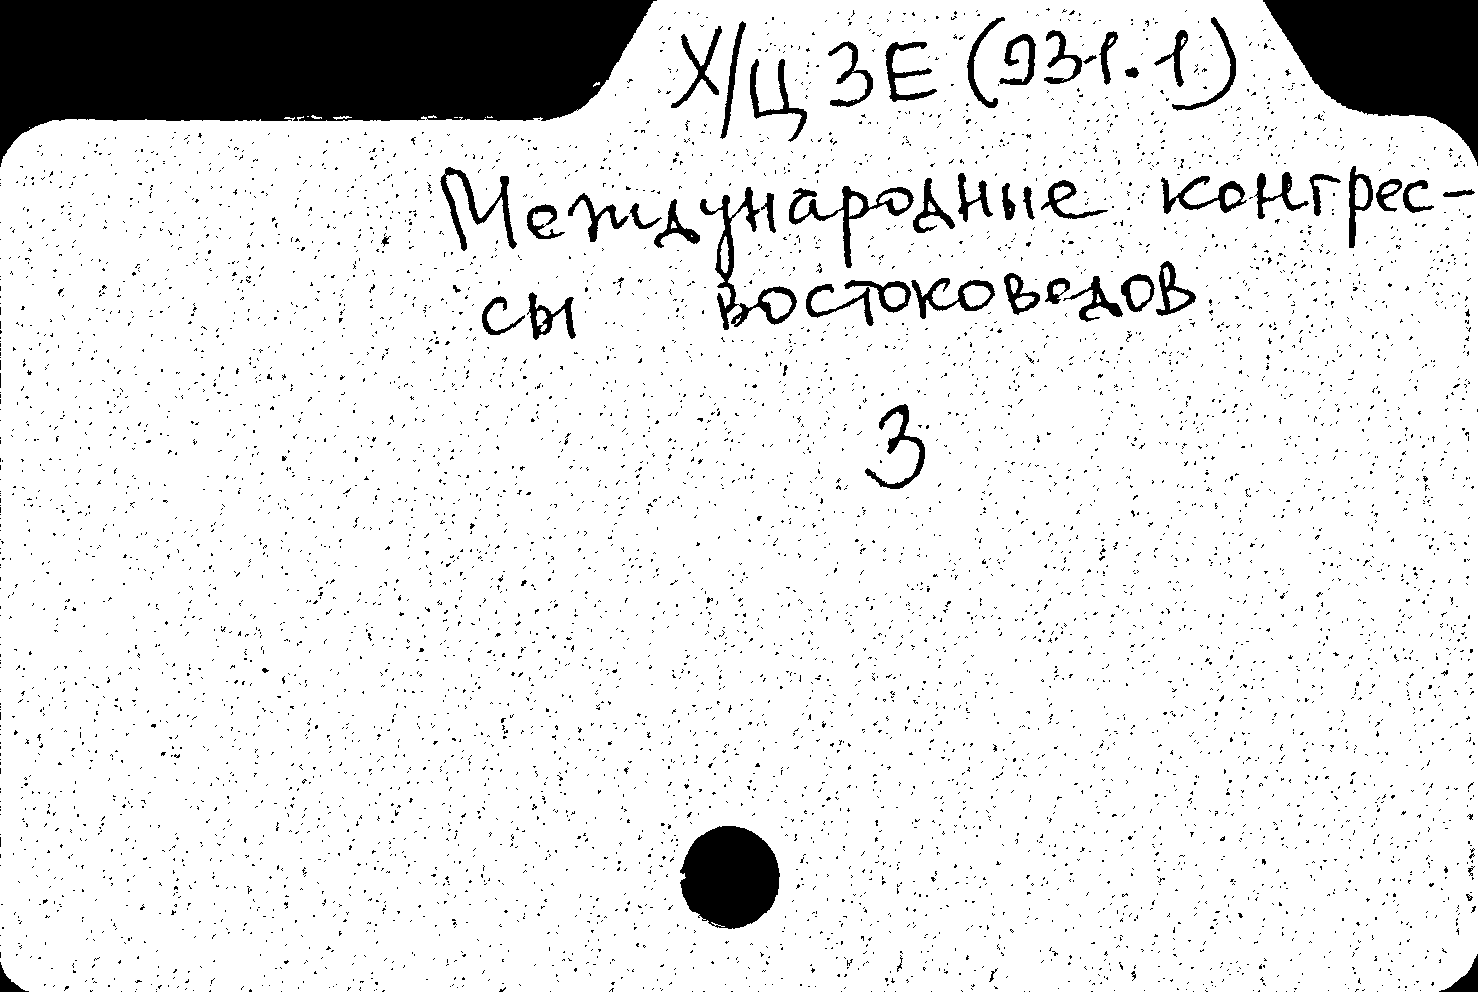 Х/Ц 3Е (931.1)
Международные конгрес-
сы востоковедов
3